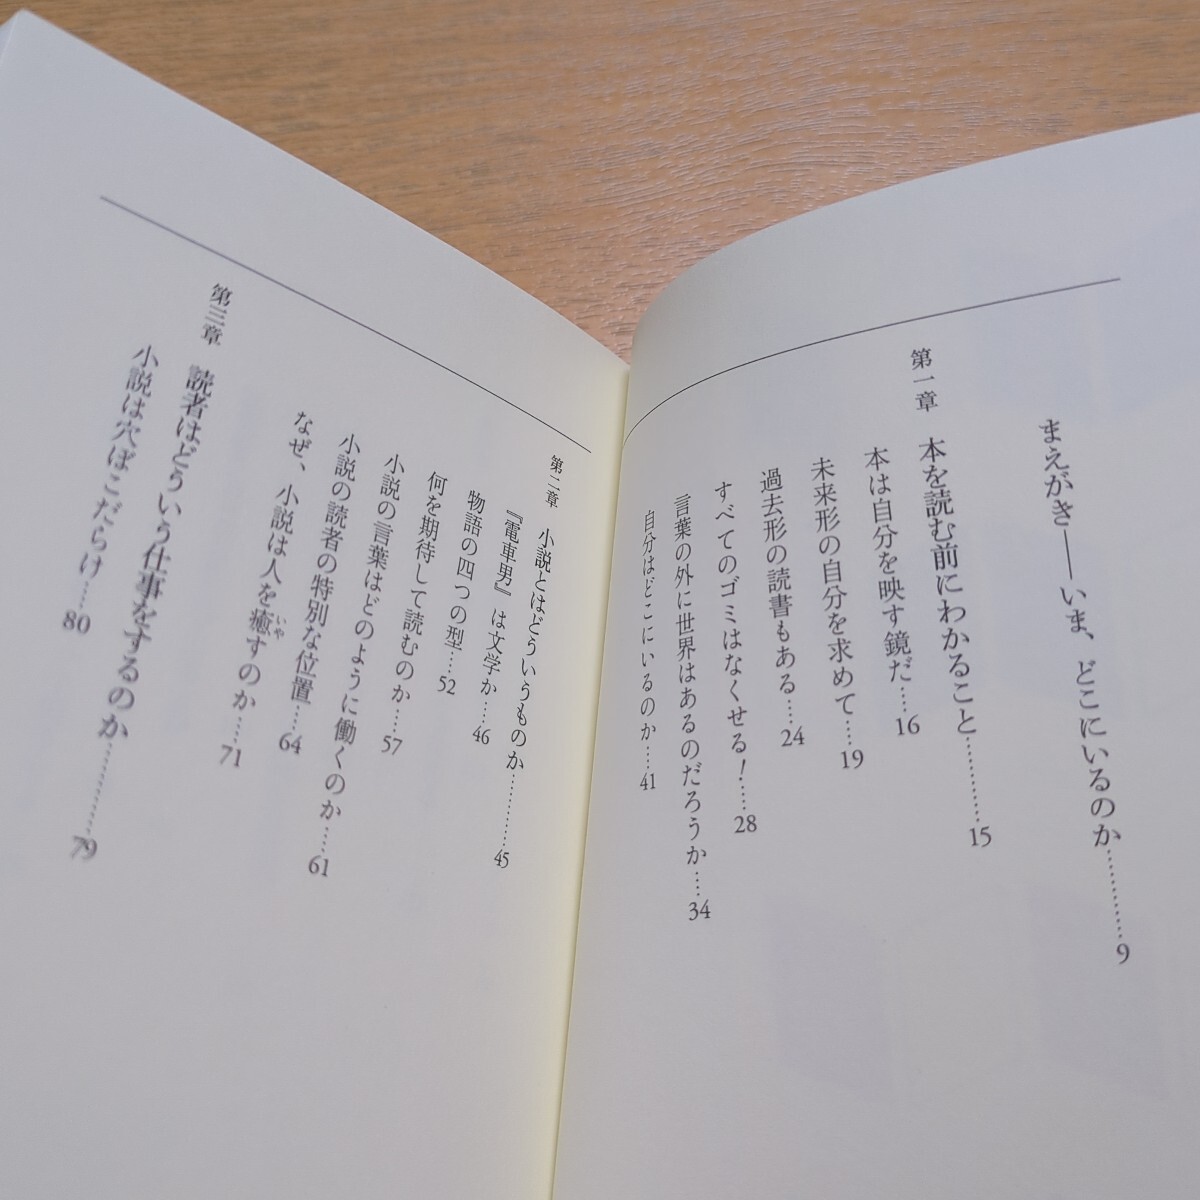 まえがき――いま、どこにいるのか…………9
第一章 本を読む前にわかること…………15
本は自分を映す鏡だ……16
未来形の自分を求めて……19
過去形の読書もある……24
すべてのゴミはなくせる！……28
言葉の外に世界はあるのだろうか……34
自分はどこにいるのか……41
第二章 小説とはどういうものか…………45
『電車男』は文学か……46
物語の四つの型……52
何を期待して読むのか……57
小説の言葉はどのように働くのか……61
小説の読者の特別な位置……64
なぜ、小説は人を癒すのか……71
いや
第三章 読者はどういう仕事をするのか…………79
小説は穴ぼこだらけ……80